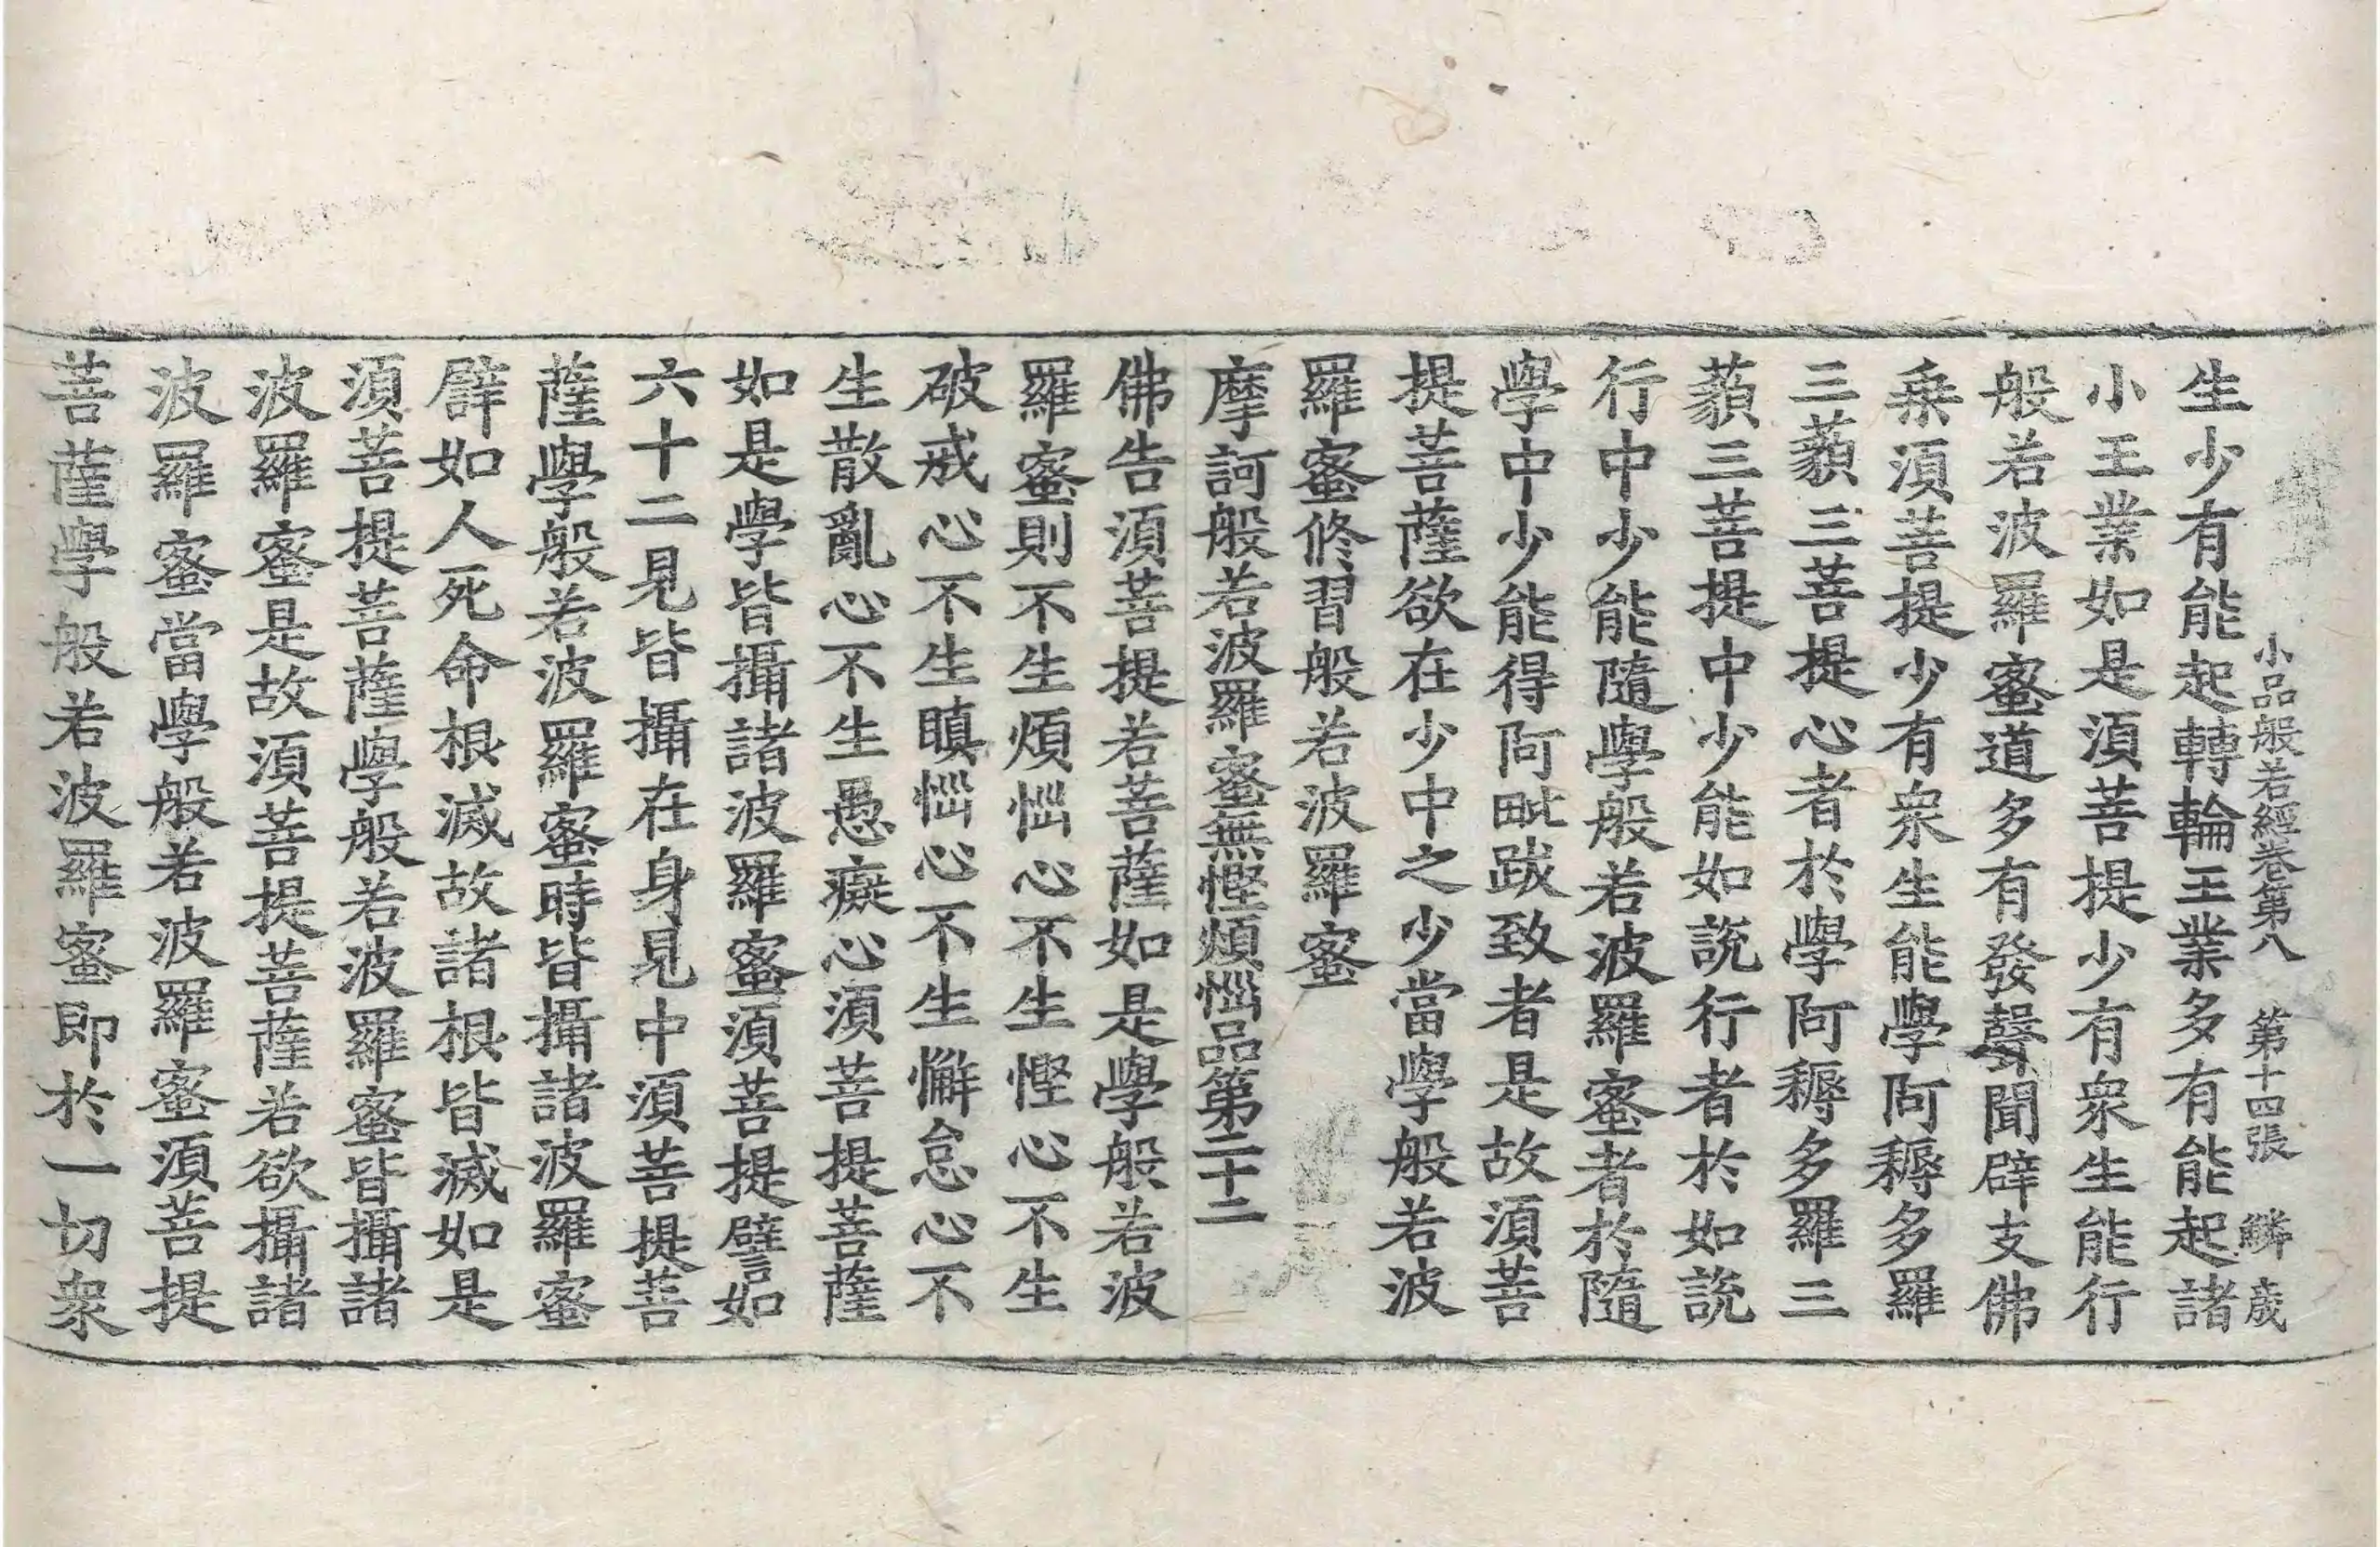 小品般若經卷第八 第十四張 鱗 歲
生少有能起轉輪王業多有能起諸
小王業如是須菩提少有衆生能行
般若波羅蜜道多有發聲聞辟支佛
乗須菩提少有衆生能學阿耨多羅
三藐三菩提心者於學阿耨多羅三
藐三菩提中少能如說行者於如說
行中少能隨學般若波羅蜜者於隨
學中少能得阿毗跋致者是故須菩
提菩薩欲在少中之少當學般若波
羅蜜修習般若波羅蜜
摩訶般若波羅蜜無慳煩惱品第二十二
佛告須菩提若菩薩如是學般若波
羅蜜則不生煩惱心不生慳心不生
破戒心不生瞋惱心不生懈怠心不
生散亂心不生愚癡心須菩提菩薩
如是學皆攝諸波羅蜜須菩提譬如
六十二見皆攝在身見中須菩提菩
薩學般若波羅蜜時皆攝諸波羅蜜
譬如人死命根滅故諸根皆滅如是
須菩提菩薩學般若波羅蜜皆攝諸
波羅蜜是故須菩提菩薩若欲攝諸
波羅蜜當學般若波羅蜜須菩提
菩薩學般若波羅蜜即於一切衆